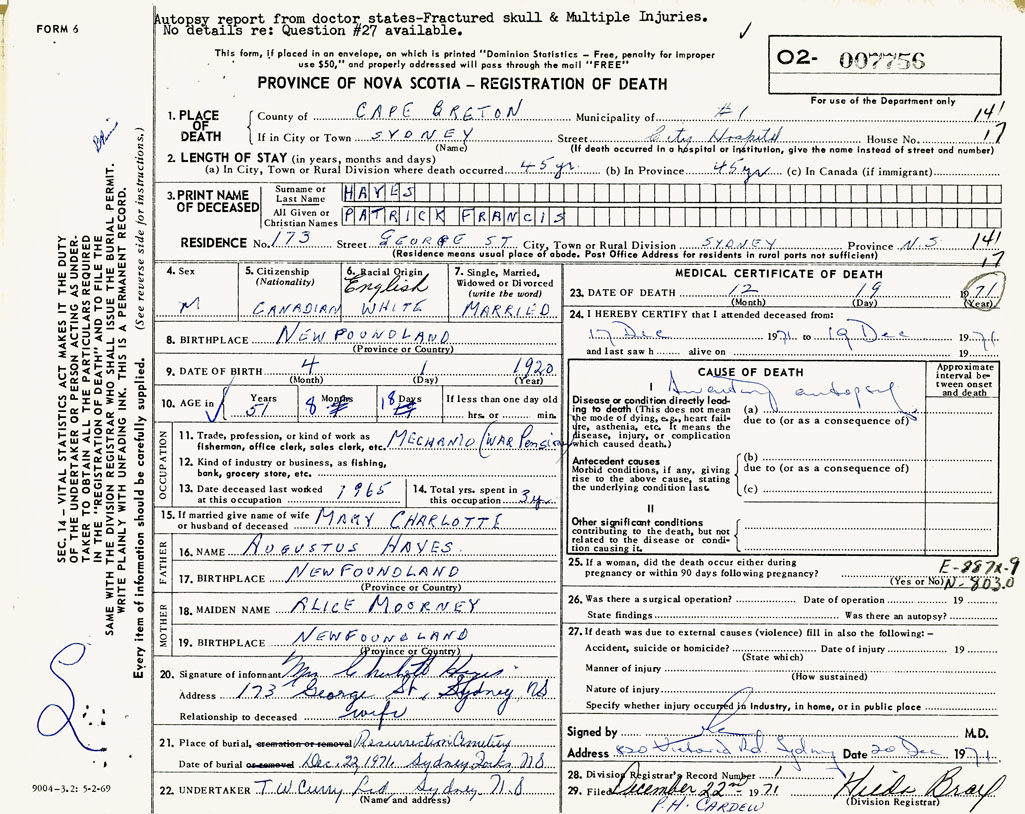 FORM 6
Autopsy report from doctor states-Fractured skull & Multiple Injuries.
No details re: Question #27 available.
This form, if placed in an envelope, on which is printed "Dominion Statistics – Free, penalty for improper
use $50," and properly addressed will pass through the mail "FREE"
PROVINCE OF NOVA SCOTIA – REGISTRATION OF DEATH
O2- 007756
For use of the Department only
1. PLACE OF DEATH
County of CAPE BRETON Municipality of #1 141
If in City or Town SYDNEY Street City Hospital House No. 17
(Name) (If death occurred in a hospital or institution, give the name instead of street and number)
2. LENGTH OF STAY (in years, months and days)
(a) In City, Town or Rural Division where death occurred 45 yr. (b) In Province 45 yr (c) In Canada (if immigrant)
3. PRINT NAME OF DECEASED
Surname or Last Name HAYES
All Given or Christian Names PATRICK FRANCIS
RESIDENCE No. 173 Street GEORGE ST City, Town or Rural Division SYDNEY Province N.S 141
(Residence means usual place of abode. Post Office Address for residents in rural parts not sufficient) 17
4. Sex M
5. Citizenship (Nationality) CANADIAN
6. Racial Origin English WHITE
7. Single, Married, Widowed or Divorced (write the word) MARRIED
8. BIRTHPLACE NEWFOUNDLAND
(Province or Country)
9. DATE OF BIRTH 4 1 1920
(Month) (Day) (Year)
10. AGE in Years 51 Months 8 Days 18 If less than one day old
hrs. or min.
OCCUPATION
11. Trade, profession, or kind of work as
fisherman, office clerk, sales clerk, etc. MECHANIC (WAR Pension)
12. Kind of industry or business, as fishing,
bank, grocery store, etc.
13. Date deceased last worked
at this occupation 1965
14. Total yrs. spent in
this occupation 3 yr.
15. If married give name of wife
or husband of deceased MARY CHARLOTTE
FATHER
16. NAME AUGUSTUS HAYES
17. BIRTHPLACE NEWFOUNDLAND
(Province or Country)
MOTHER
18. MAIDEN NAME ALICE MOORNEY
19. BIRTHPLACE NEWFOUNDLAND
(Province or Country)
20. Signature of informant Mrs
Address 173 George St, Sydney NS
Relationship to deceased wife
21. Place of burial, cremation or removal Resurrection Cemetery
Date of burial or removal Dec. 22, 1971. Sydney Forks, N.S
22. UNDERTAKER T.W. Curry Ltd, Sydney N.S
(Name and address)
MEDICAL CERTIFICATE OF DEATH
23. DATE OF DEATH 12 19 1971
(Month) (Day) (Year)
24. I HEREBY CERTIFY that I attended deceased from:
17 Dec 1971 to 19 Dec 1971
and last saw h alive on 19
CAUSE OF DEATH
Approximate interval between onset and death
I Awaiting autopsy
Disease or condition directly leading to death (This does not mean the mode of dying, e.g., heart failure, asthenia, etc. It means the disease, injury, or complication which caused death.)
(a)
due to (or as a consequence of)
Antecedent causes
Morbid conditions, if any, giving rise to the above cause, stating the underlying condition last.
(b)
due to (or as a consequence of)
(c)
II
Other significant conditions
contributing to the death, but not related to the disease or condition causing it.
25. If a woman, did the death occur either during
pregnancy or within 90 days following pregnancy?
(Yes or No) N-803.0
26. Was there a surgical operation? Date of operation 19
State findings Was there an autopsy?
27. If death was due to external causes (violence) fill in also the following:–
Accident, suicide or homicide? Date of injury 19
(State which)
Manner of injury
(How sustained)
Nature of injury
Specify whether injury occurred in industry, in home, or in public place
Signed by M.D.
Address Rd, Sydney Date 20 Dec 1971.
28. Division Registrar's Record Number 1
29. Filed December 22nd 1971 Hilda Bray
P.H. CARDEW (Division Registrar)
SEC. 14 – VITAL STATISTICS ACT MAKES IT THE DUTY
OF THE UNDERTAKER OR PERSON ACTING AS UNDER-
TAKER TO OBTAIN ALL THE PARTICULARS REQUIRED
IN THE "REGISTRATION OF DEATH" AND TO FILE THE
SAME WITH THE DIVISION REGISTRAR WHO SHALL ISSUE THE BURIAL PERMIT.
WRITE PLAINLY WITH UNFADING INK. THIS IS A PERMANENT RECORD.
Every item of information should be carefully supplied. (See reverse side for instructions.)
9004-3.2: 5-2-69